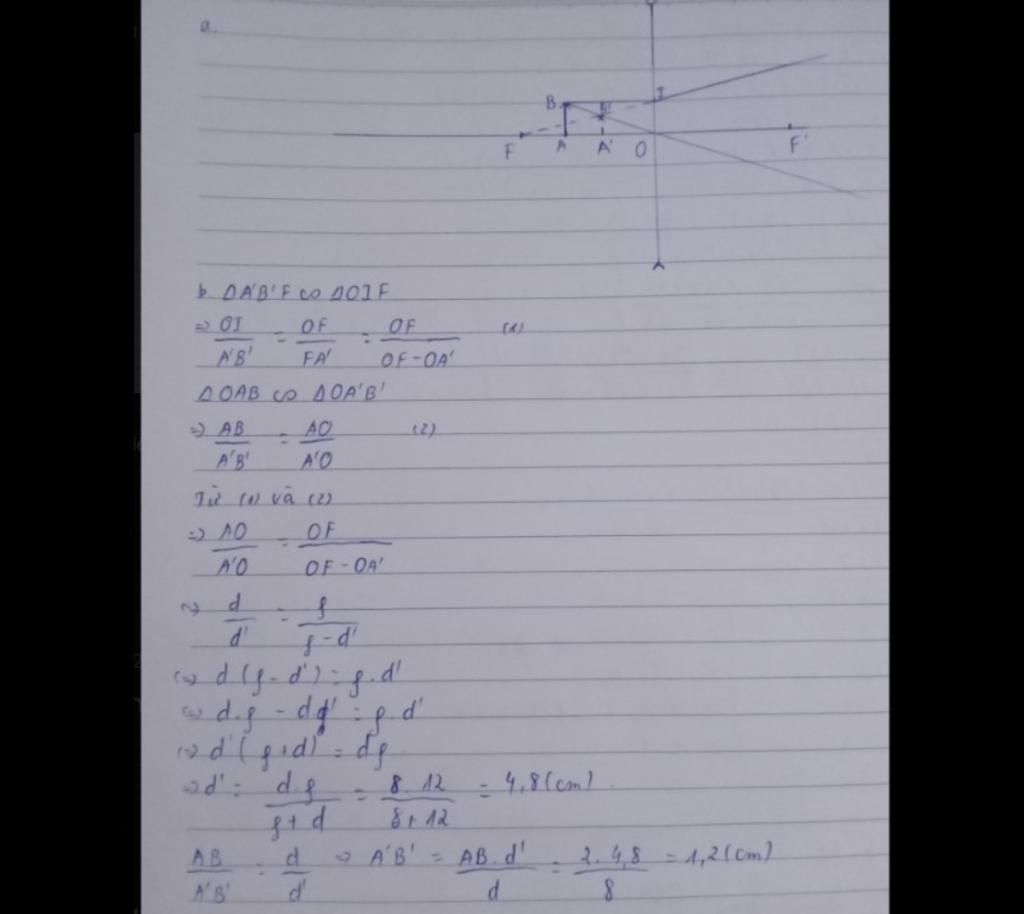 a.
B B' I
F A A' O F'
b. ΔA'B'F ∽ ΔOIF
=> OI/A'B' = OF/FA' = OF/(OF-OA') (1)
ΔOAB ∽ ΔOA'B'
=> AB/A'B' = AO/A'O (2)
Từ (1) và (2)
=> AO/A'O = OF/(OF-OA')
<=> d/d' = f/(f-d')
<=> d(f-d') = f.d'
<=> d.f - dd' = f.d'
<=> d'(f+d) = df
=> d' = d.f/(f+d) = 8.12/(8+12) = 4,8(cm)
AB/A'B' = d/d' => A'B' = AB.d'/d = 2.4,8/8 = 1,2(cm)